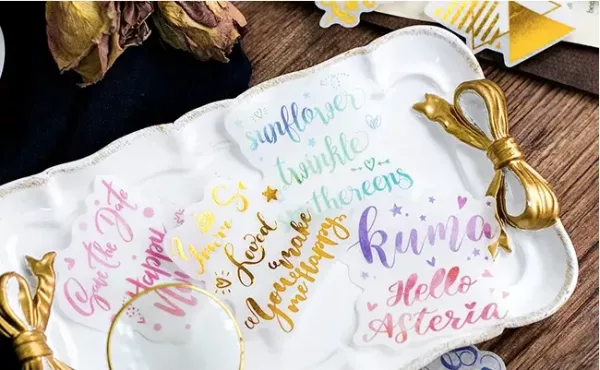 Save the Date
Happy
You're So
Loved
You make
me Happy
sunflower
twinkle
kuma
Hello
Asteria